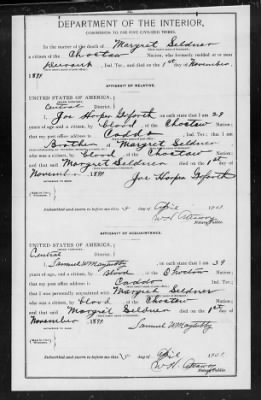 DEPARTMENT OF THE INTERIOR,
COMMISSION TO THE FIVE CIVILIZED TRIBES.
In the matter of the death of Margret Seldner
a citizen of the Choctaw Nation, who formerly resided at or near
Durant, Ind. Ter., and died on the 1st day of November,
1899
AFFIDAVIT OF RELATIVE.
UNITED STATES OF AMERICA,
INDIAN TERRITORY,
Central District.
I, Joe Hooper Goforth, on oath state that I am 29
years of age and a citizen by blood, of the Choctaw Nation;
that my post office address is Caddo, Ind. Ter.; that I am
Brother of Margret Seldner
who was a citizen, by blood, of the Choctaw Nation;
and that said Margret Seldner died on the 1st day of
November, 1899
Joe Hooper Goforth
Subscribed and sworn to before me this day of April 1901
Notary Public.
AFFIDAVIT OF ACQUAINTANCE.
UNITED STATES OF AMERICA,
INDIAN TERRITORY,
Central District.
I, Samuel W Maytubby, on oath state that I am 39
years of age, and a citizen by blood of the Choctaw Nation;
that my post office address is Caddo Ind. Ter.;
that I was personally acquainted with Margret Seldner
who was a citizen, by blood, of the Choctaw Nation;
and that said Margret Seldner died on the 1st day of
November, 1899
Samuel W Maytubby
Subscribed and sworn to before me this day of April 1901.
Notary Public.